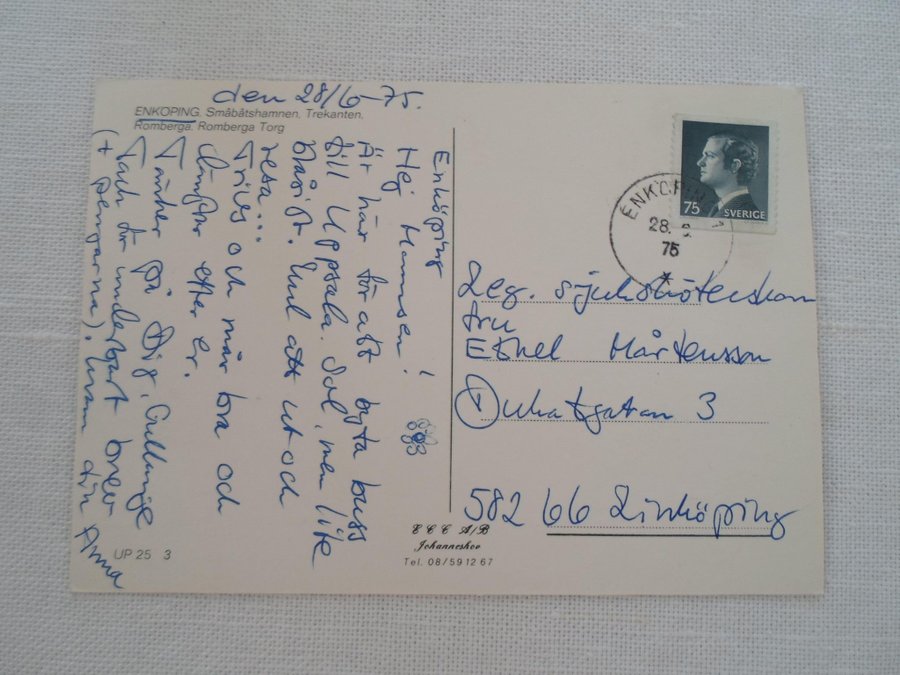 den 28/6-75.
ENKÖPING. Småbåtshamnen, Trekanten.
Romberga. Romberga Torg
Enköping
Hej Mamsen!
Är här för att byta buss
till Uppsala. Sol, men lite
blåsigt. Kul att ut och
resa!!
Trivs och mår bra och
längtar efter er.
Tänker på Dig, Gullunge
Tack för underbart brev
(+ pengarna). Kram din Anna
UP 25 3
75
SVERIGE
ENKÖPING 1
28. 6.
75
Leg. sjuksköterskan
fru
Ethel Mårtensson
Dukatgatan 3
582 66 Linköping
E C C A/B
Johanneshov
Tel. 08/59 12 67